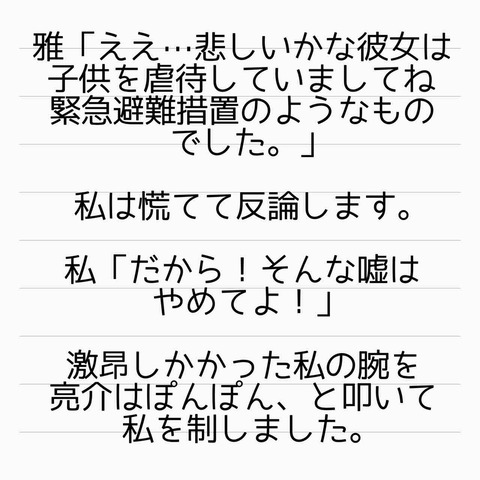 雅「ええ…悲しいかな彼女は
子供を虐待していましてね
緊急避難措置のようなもの
でした。」
私は慌てて反論します。
私「だから！そんな嘘は
やめてよ！」
激昂しかかった私の腕を
亮介はぽんぽん、と叩いて
私を制しました。